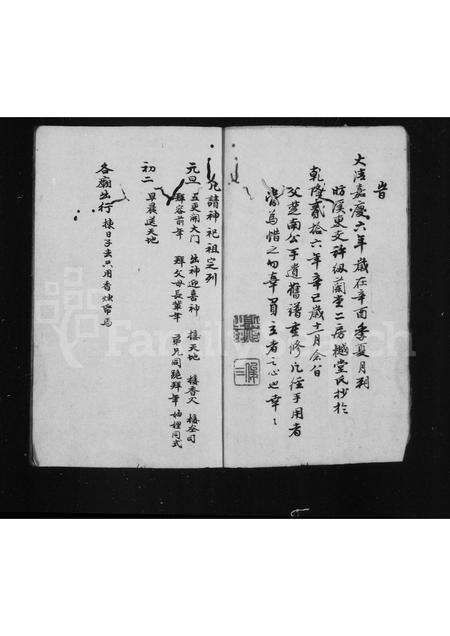 旹
大清嘉慶六年歲在辛酉季夏月朔
昉溪東文許級蘭堂二房樾堂氏抄於
乾隆貳拾六年辛巳歲十一月余伯
父楚南公手道舊譜重修凡經手用者
當為惜之勿辜買主者之心也幸々
凡請神祀祖定列
元旦 五更開大門 出神迎喜神 接天地 接香火 接灶司
拜谷前年 拜父母長輩年 弟兄同跪拜年 妯娌同式
初二 早晨送天地
各廟出行 揀日子出只用香燭帛馬
FamilySearch